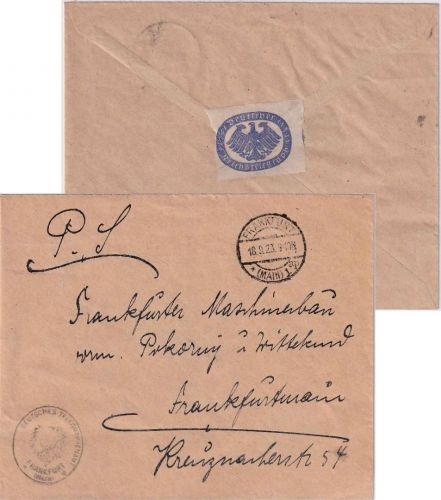 Deutscher
Reichskriegerbund
P. S.
FRANKFURT
18.9.23. 9-10N
* (MAIN) 1
Frankfurter Maschinenbau
vorm. Pokorny u Wittekind
Frankfurtmain
Kreuznacherstr 54
DEUTSCHES
* FRANKFURT *
(MAIN)